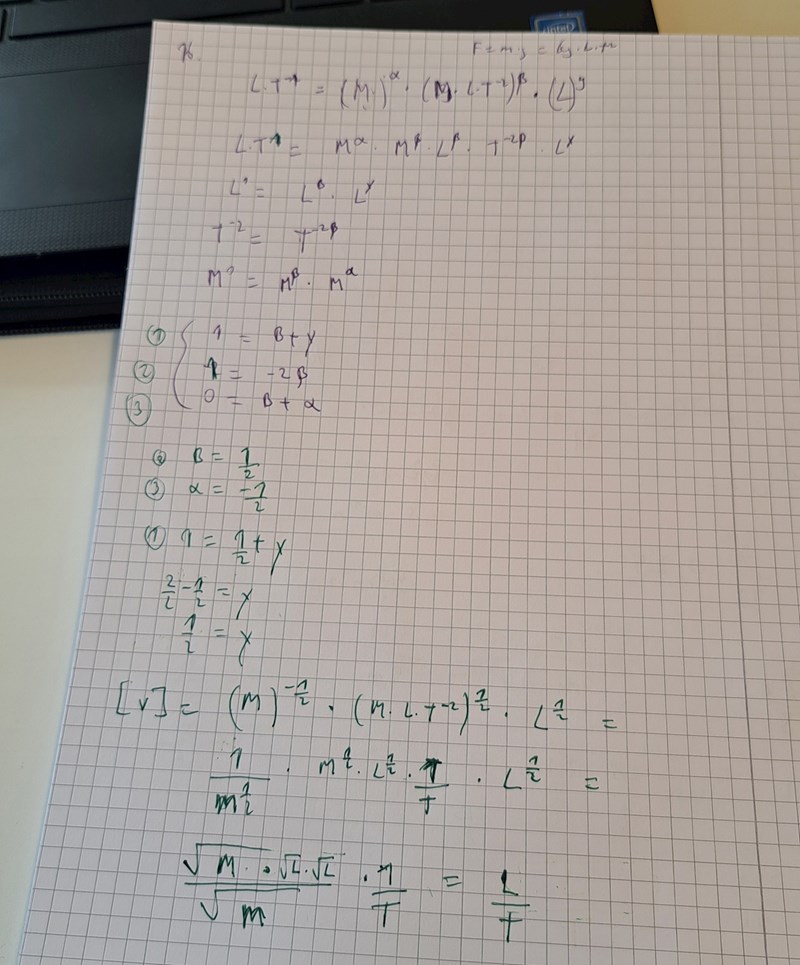 intel
F = m.g = kg.L.T-2
L.T⁻¹ = (M.)^α · (M.L.T⁻²)^β · (L)^y
L.T⁻¹ = M^α · M^β · L^β · T^-2β · L^γ
L¹ = L^β · L^γ
T⁻² = T^-2β
M⁰ = M^β · M^α
① 1 = β + γ
② 1 = -2β
③ 0 = β + α
② β = 1/2
③ α = -1/2
① 1 = 1/2 + γ
2/2 - 1/2 = γ
1/2 = γ
[v] = (M)^-1/2 · (M.L.T⁻²)^1/2 · L^1/2 =
1/m^1/2 · M^1/2 · L^1/2 · 1/T · L^1/2 =
√M · √L · √L / √m · 1/T = L/T